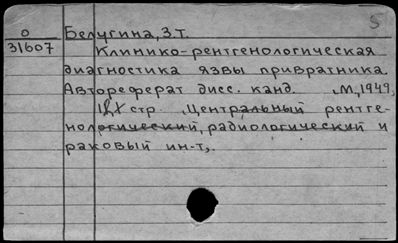 5
О Белугина, З.Т.
31607 Клинико-рентгенологическая
диагностика язвы привратника.
Автореферат дисс. канд. М., 1949,
стр. Центральный рентге-
нологический, радиологический и
раковый ин-т,.